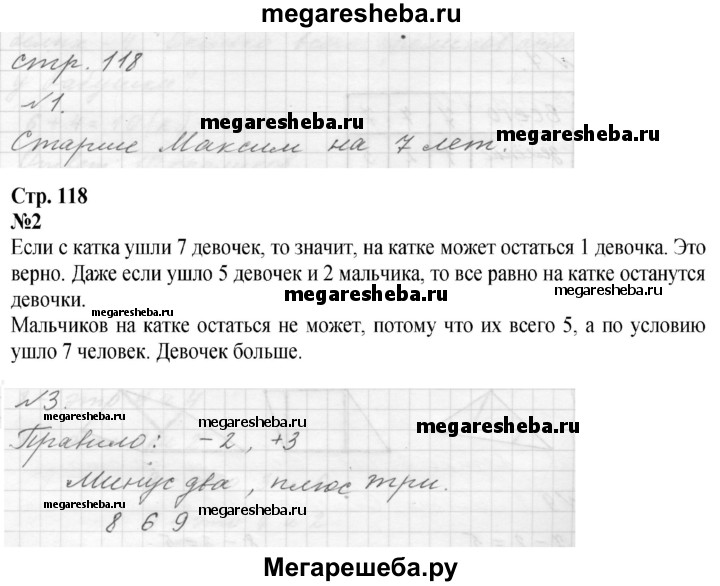 megaresheba.ru
стр. 118
№1.
megaresheba.ru
megaresheba.ru
Старше Максим на 7 лет.
Стр. 118
№2
Если с катка ушли 7 девочек, то значит, на катке может остаться 1 девочка. Это
верно. Даже если ушло 5 девочек и 2 мальчика, то все равно на катке останутся
девочки.
megaresheba.ru
megaresheba.ru
megaresheba.ru
Мальчиков на катке остаться не может, потому что их всего 5, а по условию
ушло 7 человек. Девочек больше.
№3.
megaresheba.ru
megaresheba.ru
megaresheba.ru
Правило: -2, +3
Минус два, плюс три.
megaresheba.ru
megaresheba.ru
8 6 9
Мегарешеба.ру